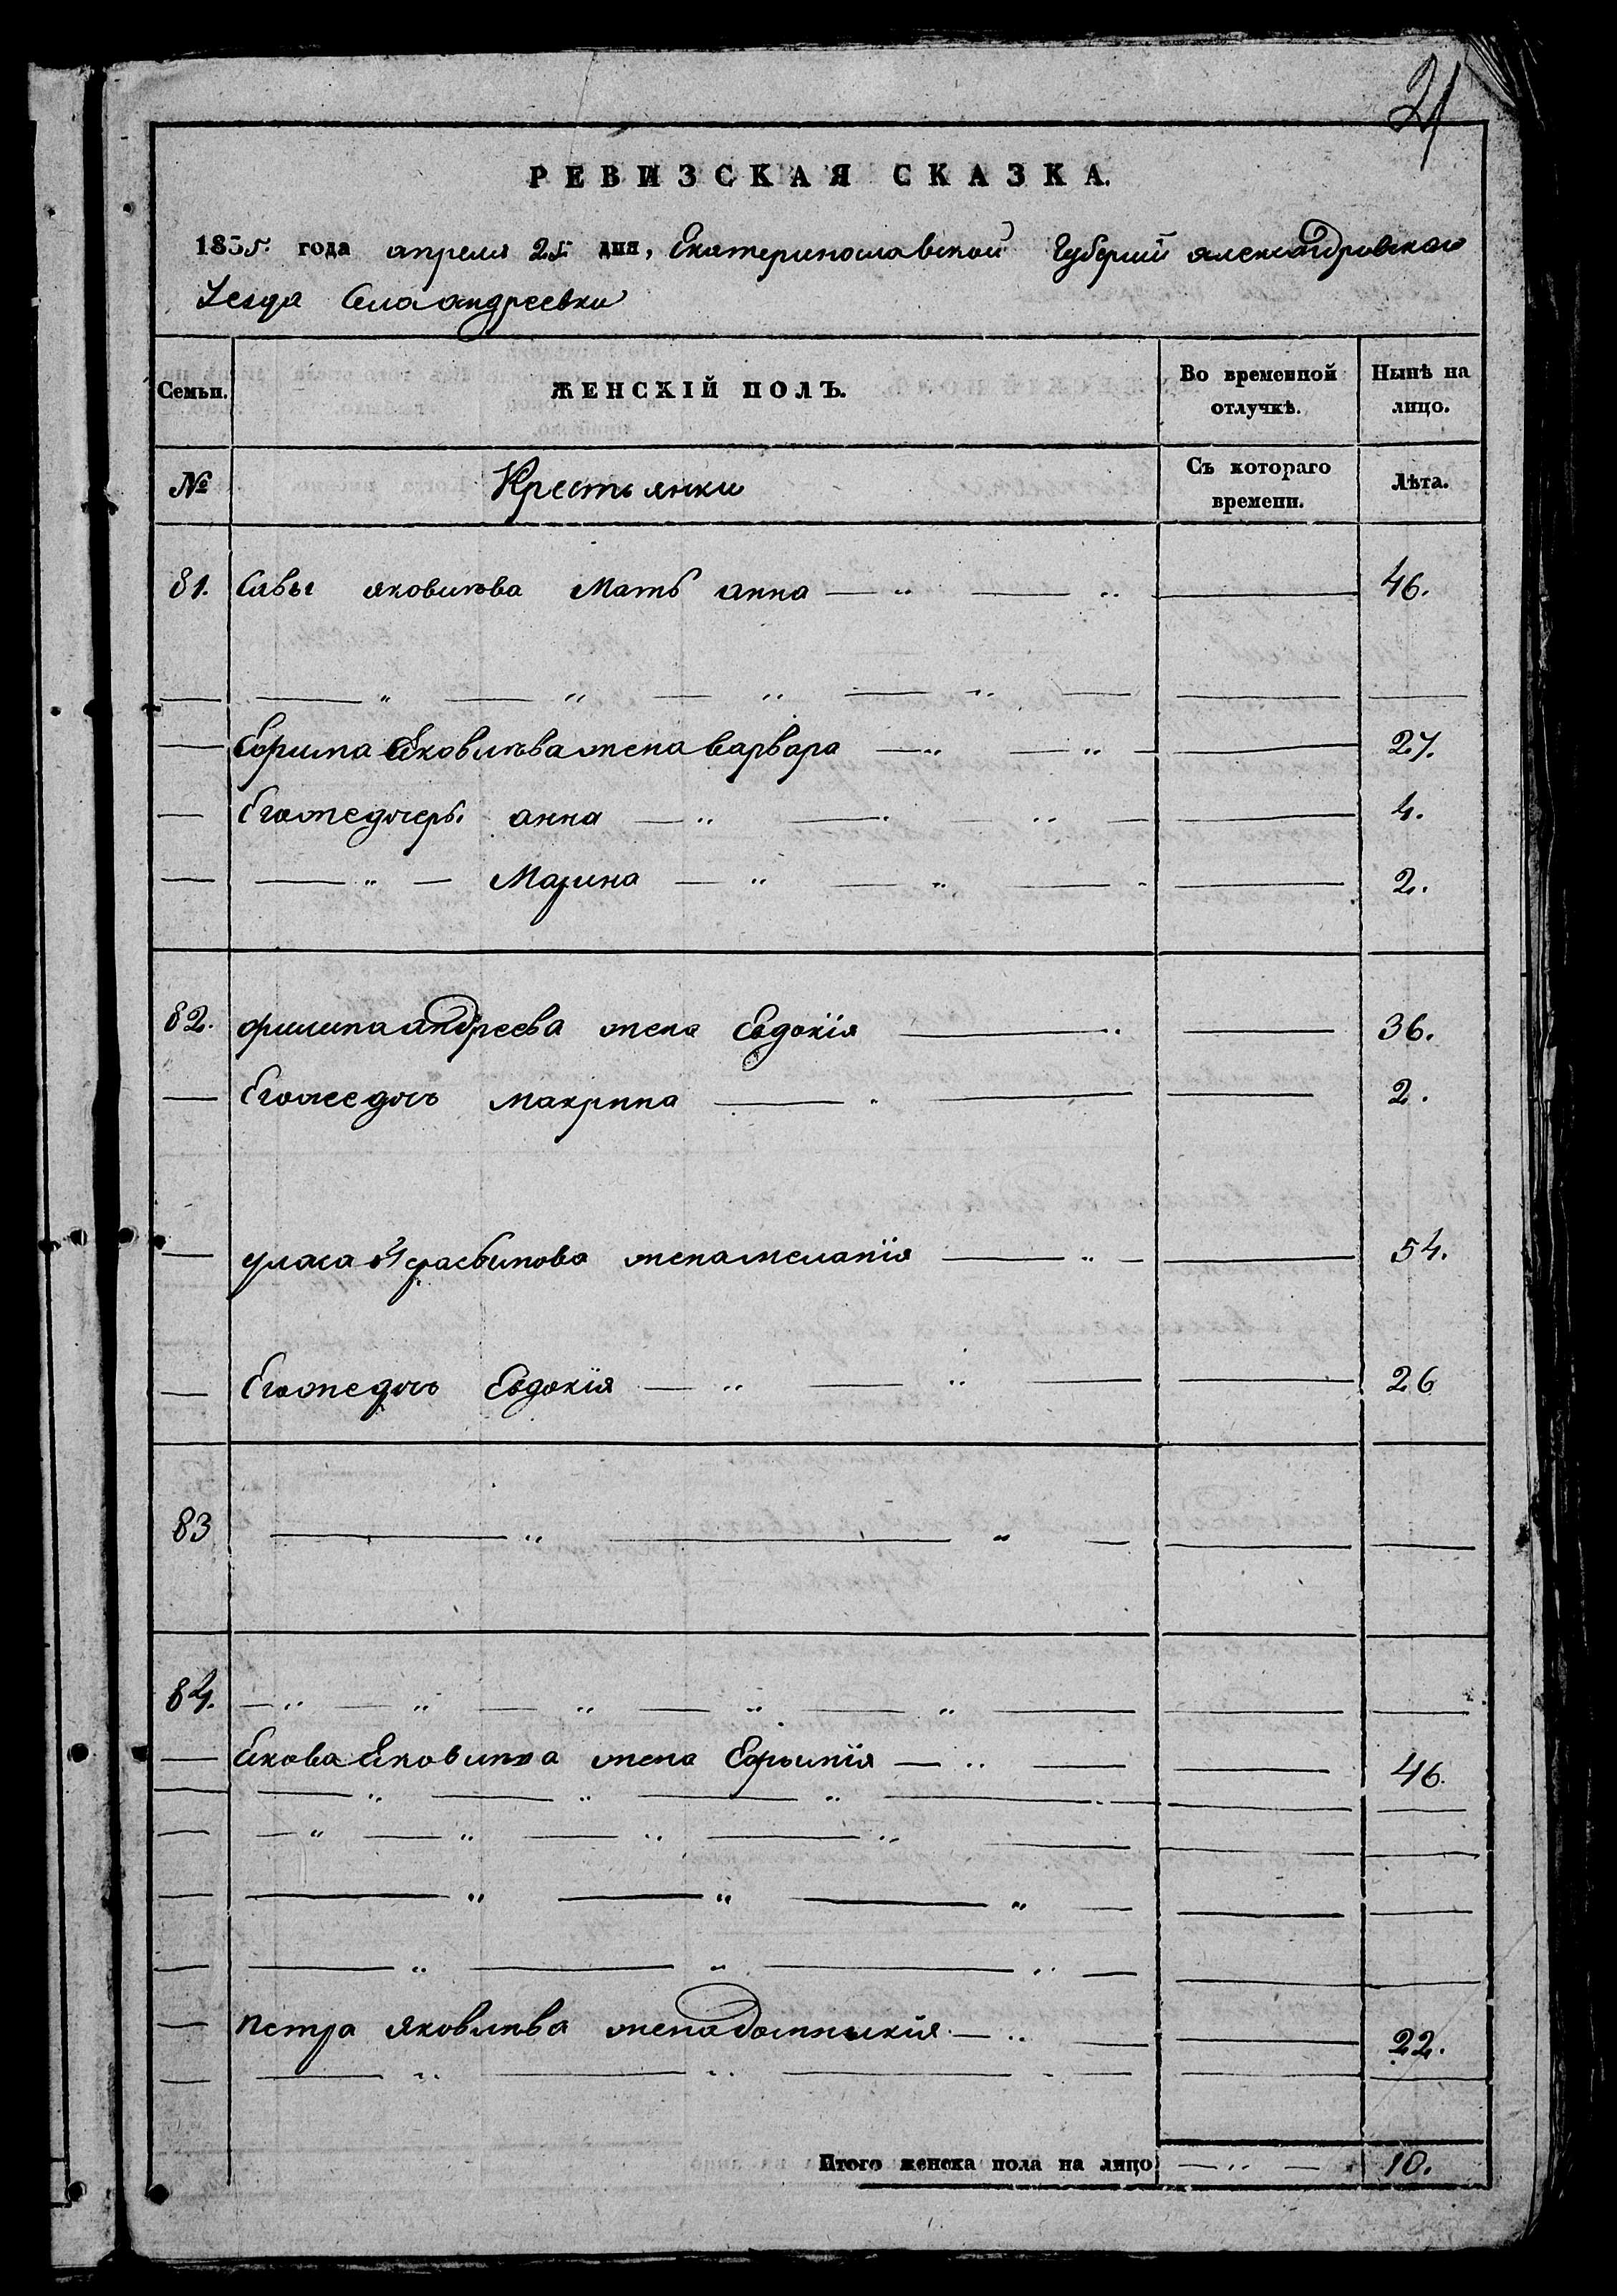 21
РЕВИЗСКАЯ СКАЗКА.
1835. года апреля 25 дня, Екатеринославской Губернии александровского
Уезда Села андреевки
Семьи. ЖЕНСКІЙ ПОЛЪ. Во временной отлучкѣ. Нынѣ на лицо.
№ Крестьянки Съ котораго времени. Лѣта.
81. Савы яковлева Мать анна — " — " — 46.
— — " — " — " — " — — —
— Ефима Яковлева жена варвара — " — " — — 27.
— Егожедочери анна — " — " — — 4.
— — " — Марина — " — " — " — 2.
82. филипа андреева жена Евдокія — " — 36.
— Егожедочь макрина — " — — 2.
— уласа жена меланія — " — — 54.
— Егожедочь Евдокія — " — " — — 26
83 — " — " — — —
84. — " — " — " — " — " — — —
— Якова Яковлева жена — " — — 46.
— — " — " — " — " — — —
— — " — " — " — " — — —
— — " — " — " — — —
— — " — " — " — — —
— петра яковлева жена домникія — " — — 22.
— — " — " — " — — —
Итого женска пола на лицо — " — 10.